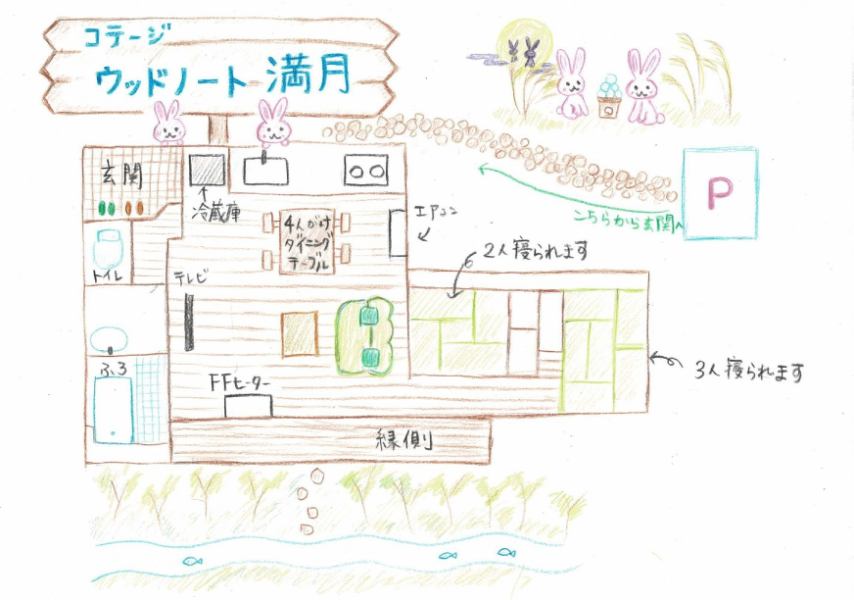 コテージ
ウッドノート 満月
玄関
冷蔵庫
4人がけ
ダイニング
テーブル
エアコン
P
こちらから玄関へ
2人寝られます
トイレ
テレビ
3人寝られます
ふろ
FFヒーター
縁側